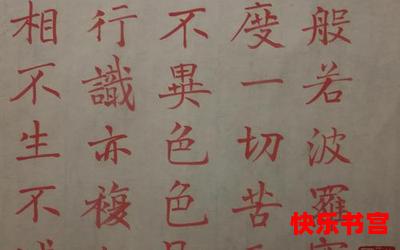 般若波羅
度一切苦
不異色色
行識亦複
相不生不
快乐书宫